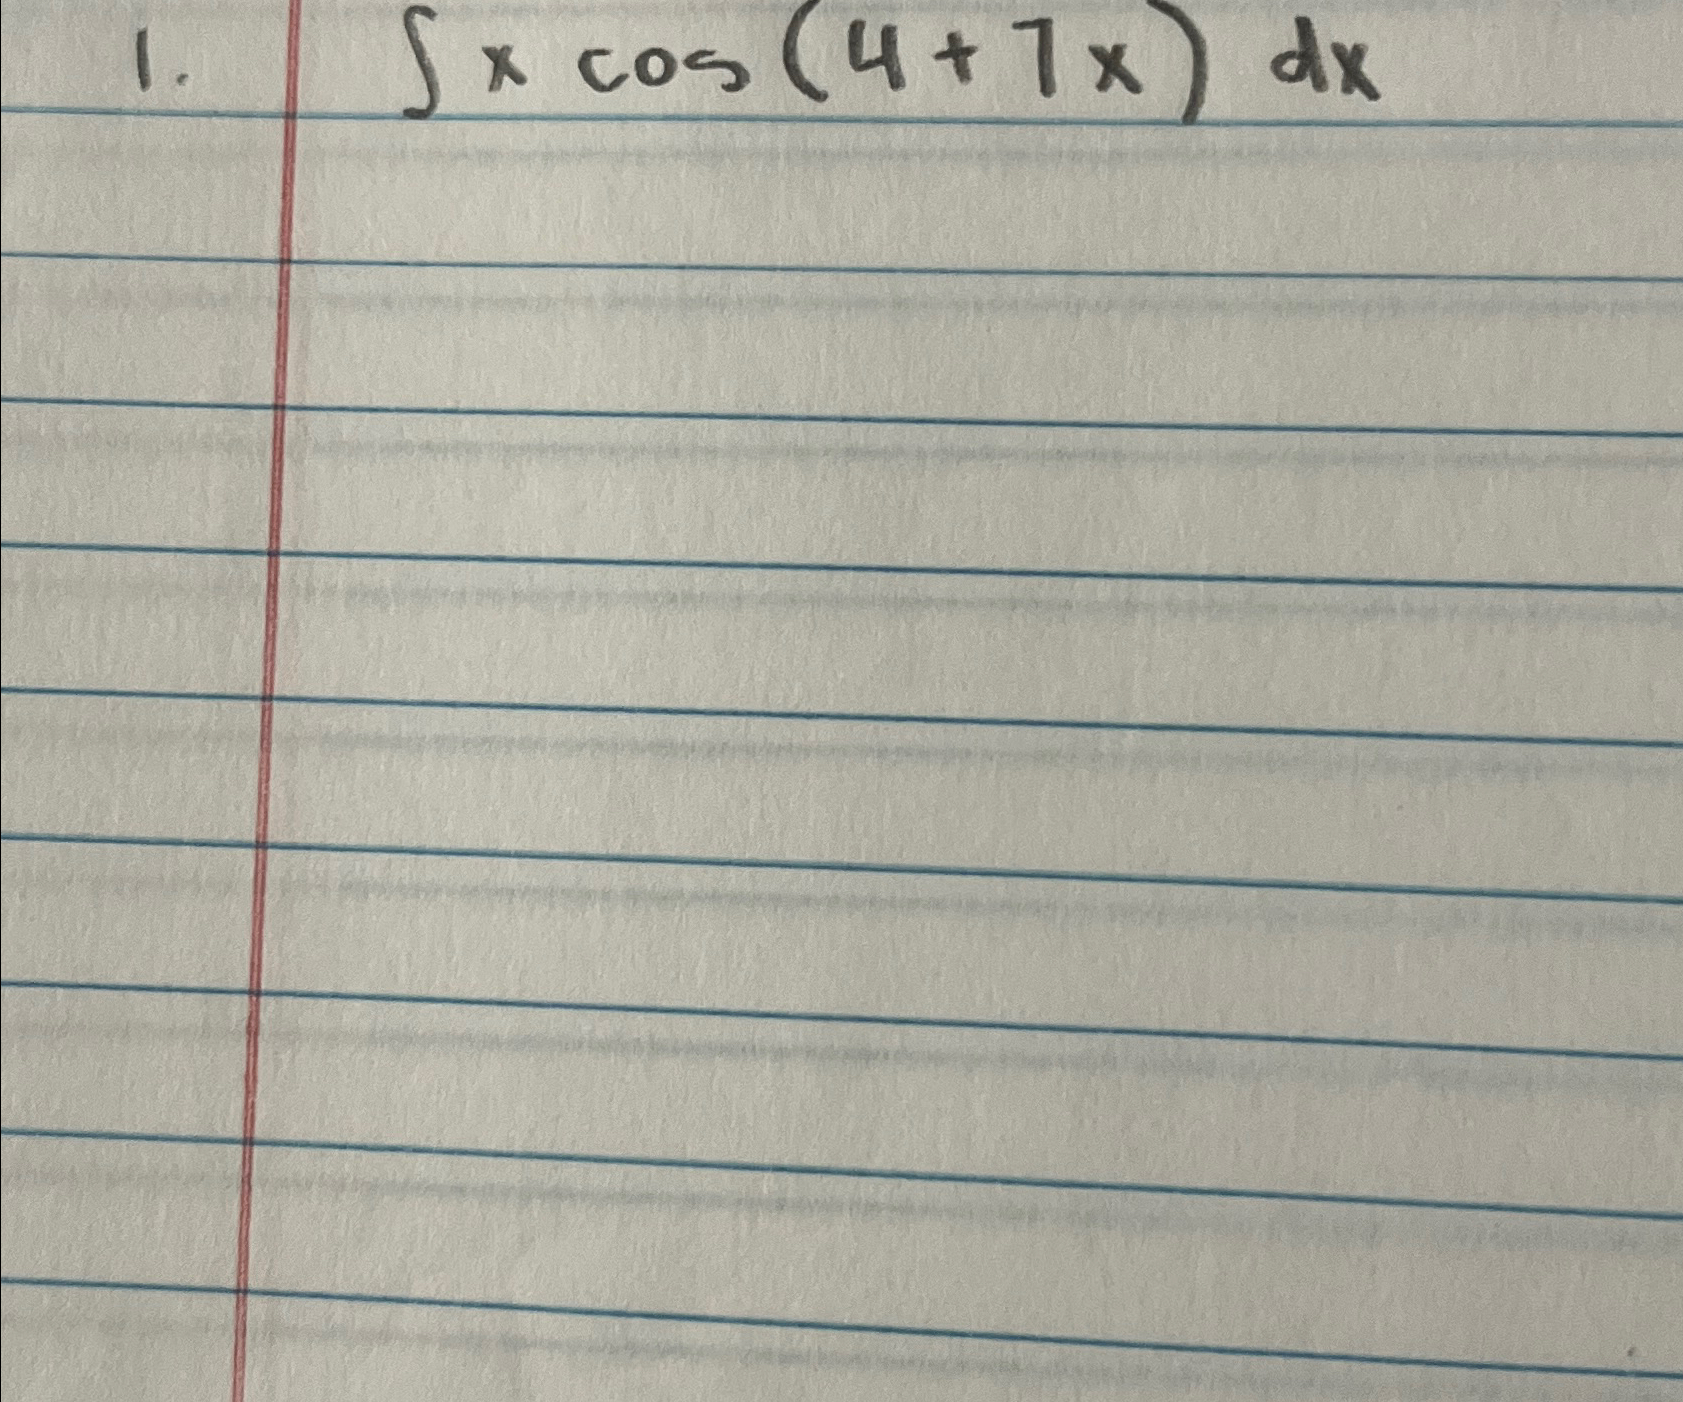 1. ∫ x cos (4 + 7x) dx